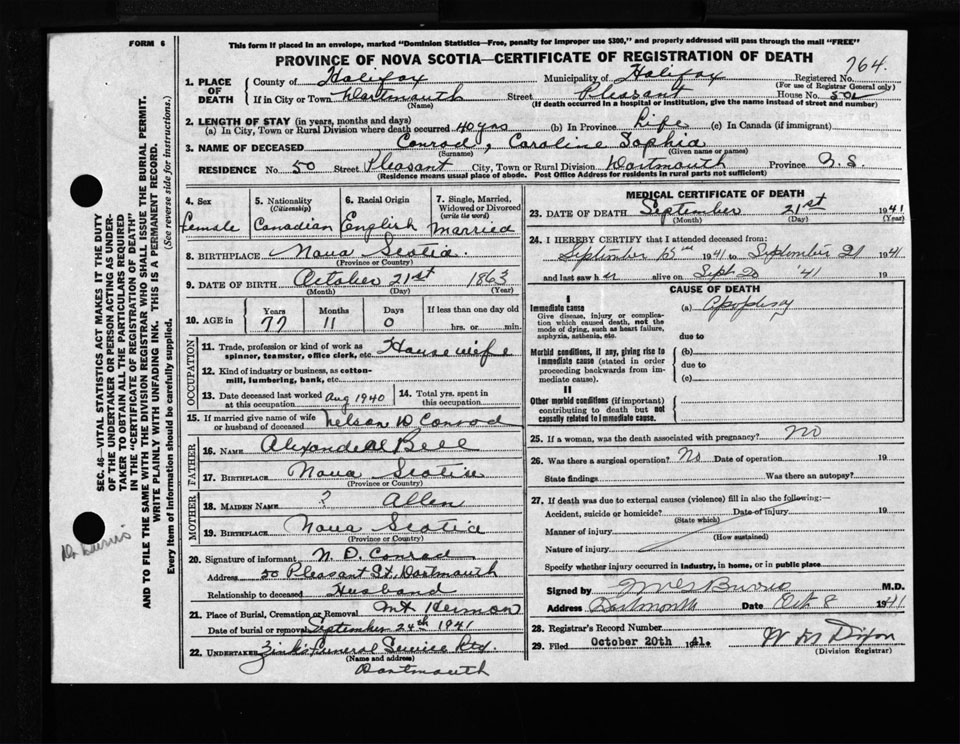 FORM 6
This form if placed in an envelope, marked "Dominion Statistics—Free, penalty for improper use $300," and properly addressed will pass through the mail "FREE"
PROVINCE OF NOVA SCOTIA—CERTIFICATE OF REGISTRATION OF DEATH
764.
1. PLACE OF DEATH
County of Halifax Municipality of Halifax Registered No.
(For use of Registrar General only)
If in City or Town Dartmouth Street Pleasant House No. 50
(Name) (If death occurred in a hospital or institution, give the name instead of street and number)
2. LENGTH OF STAY (in years, months and days)
(a) In City, Town or Rural Division where death occurred 40 yrs (b) In Province Life (c) In Canada (if immigrant)
3. NAME OF DECEASED Conrad, Caroline Sophia
(Surname) (Given name or names)
RESIDENCE No. 50 Street Pleasant City, Town or Rural Division Dartmouth Province N.S.
(Residence means usual place of abode. Post Office Address for residents in rural parts not sufficient)
4. Sex
Female
5. Nationality (Citizenship)
Canadian
6. Racial Origin
English
7. Single, Married, Widowed or Divorced (write the word)
Married
8. BIRTHPLACE Nova Scotia.
(Province or Country)
9. DATE OF BIRTH October 21st 1863
(Month) (Day) (Year)
10. AGE in Years Months Days If less than one day old
77 11 0 hrs. or min.
OCCUPATION
11. Trade, profession or kind of work as spinner, teamster, office clerk, etc. Housewife
12. Kind of industry or business, as cotton-mill, lumbering, bank, etc.
13. Date deceased last worked at this occupation Aug 1940
14. Total yrs. spent in this occupation
15. If married give name of wife or husband of deceased Nelson D Conrad
FATHER
16. NAME Alexander Bell
17. BIRTHPLACE Nova Scotia
(Province or Country)
MOTHER
18. MAIDEN NAME ? Allen
19. BIRTHPLACE Nova Scotia
(Province or Country)
20. Signature of informant N. D. Conrad
Address 50 Pleasant St, Dartmouth
Relationship to deceased Husband
21. Place of Burial, Cremation or Removal Mt Hermon
Date of burial or removal September 24th 1941
22. UNDERTAKER Zink's Funeral Service Ltd.
(Name and address)
Dartmouth
MEDICAL CERTIFICATE OF DEATH
23. DATE OF DEATH September 21st 1941
(Month) (Day) (Year)
24. I HEREBY CERTIFY that I attended deceased from:
September 1941 to September 21 1941
and last saw her alive on Sept 20 '41 19
CAUSE OF DEATH
I
Immediate cause
Give disease, injury or complication which caused death, not the mode of dying, such as heart failure, asphyxia, asthenia, etc.
(a) Apoplexy
due to
Morbid conditions, if any, giving rise to immediate cause (stated in order proceeding backwards from immediate cause).
(b)
due to
(c)
II
Other morbid conditions (if important) contributing to death but not causally related to immediate cause.
25. If a woman, was the death associated with pregnancy? No
26. Was there a surgical operation? No Date of operation 19
State findings Was there an autopsy?
27. If death was due to external causes (violence) fill in also the following:—
Accident, suicide or homicide? Date of injury 19
(State which)
Manner of injury
(How sustained)
Nature of injury
Specify whether injury occurred in Industry, in home, or in public place
Signed by Burris M.D.
Address Dartmouth Date Oct 8 1941
28. Registrar's Record Number
29. Filed October 20th 1941. W M Dixon
(Division Registrar)
SEC. 46—VITAL STATISTICS ACT MAKES IT THE DUTY
OF THE UNDERTAKER OR PERSON ACTING AS UNDER-
TAKER TO OBTAIN ALL THE PARTICULARS REQUIRED
IN THE "CERTIFICATE OF REGISTRATION OF DEATH"
AND TO FILE THE SAME WITH THE DIVISION REGISTRAR WHO SHALL ISSUE THE BURIAL PERMIT.
WRITE PLAINLY WITH UNFADING INK. THIS IS A PERMANENT RECORD.
Every item of Information should be carefully supplied. (See reverse side for instructions.)